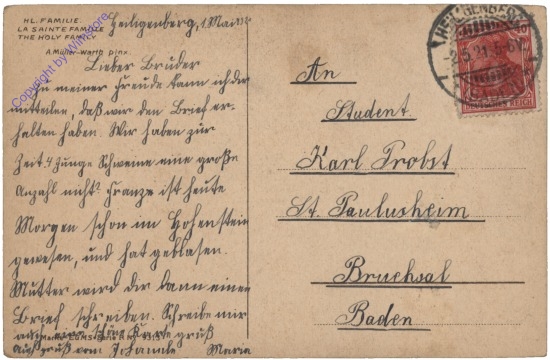 HL. FAMILIE.
LA SAINTE FAMILLE
THE HOLY FAMILY
A. Müller-Warth pinx.
Heiligenberg, 1. Mai
Lieber Bruder
In meiner Freude kann ich dir
mitteilen, daß wir den Brief er-
halten haben. Wir haben zur
Zeit 4 Junge Schweine eine große
Anzahl nicht? Franze ist heute
Morgen schon im Hohenstein
gewesen, und hat geblasen.
Mutter wird dir dann einen
Brief schreiben. Schreibe mir
auch eine Karte gruß
Auf gruß vom Johannle Maria
An
Student.
Karl Probst
St. Paulusheim
Bruchsal
Baden
HEILIGENBERG
2.5.21. 5-6N
40
DEUTSCHES REICH
Copyright by Wilnitore